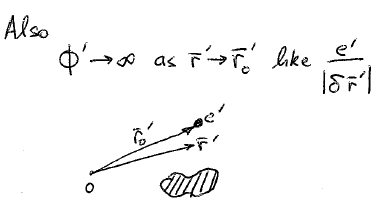 Also
ϕ' → ∞ as r̄' → r̄₀' like e'/|δr̄'|
e'
r̄₀'
r̄'
0